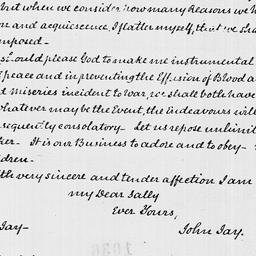 but when we consider how many Reasons we h
on and acquiescence, I flatter myself, that we sha
mposed—
should please God to make me instrumental
f peace and in preventing the Effusion of Blood a
d miseries incident to War, we shall both have
whatever may be the Event, the Endeavours will
sequently consolatory Let us repose unlimit
ker— It is our Business to adore and to obey—
dren—
ith very sincere and tender affection I am
my Dear Sally
Ever Yours,
Jay—
John Jay.